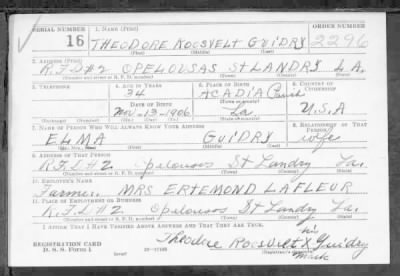 SERIAL NUMBER 1. NAME (Print) ORDER NUMBER
16 THEODORE ROOSVELT GUIDRY 2296
(First) (Middle) (Last)
2. ADDRESS (Print)
R.F.D.#2 OPELOUSAS ST LANDRY LA.
(Number and street or R. F. D. number) (Town) (County) (State)
3. TELEPHONE 4. AGE IN YEARS 5. PLACE OF BIRTH 6. COUNTRY OF CITIZENSHIP
34 ACADIA Parish
DATE OF BIRTH (Town or county)
Nov-13-1906 La U.S.A
(Mo.) (Day) (Yr.) (State or country)
7. NAME OF PERSON WHO WILL ALWAYS KNOW YOUR ADDRESS 8. RELATIONSHIP OF THAT PERSON
ELMA GUIDRY wife
(Mr., Mrs., Miss) (First) (Middle) (Last)
9. ADDRESS OF THAT PERSON
R.F.D.#2 Opelousas St Landry La.
(Number and street or R. F. D. number) (Town) (County) (State)
10. EMPLOYER'S NAME
Farmer. MRS ERTEMOND LAFLEUR
11. PLACE OF EMPLOYMENT OR BUSINESS
R.F.D.#2 Opelousas St Landry La.
(Number and street or R. F. D. number) (Town) (County) (State)
I AFFIRM THAT I HAVE VERIFIED ABOVE ANSWERS AND THAT THEY ARE TRUE.
his
REGISTRATION CARD Theodore Roosvelt X Guidry
D. S. S. Form 1 (over) 16-17105 (Registrant's signature) mark